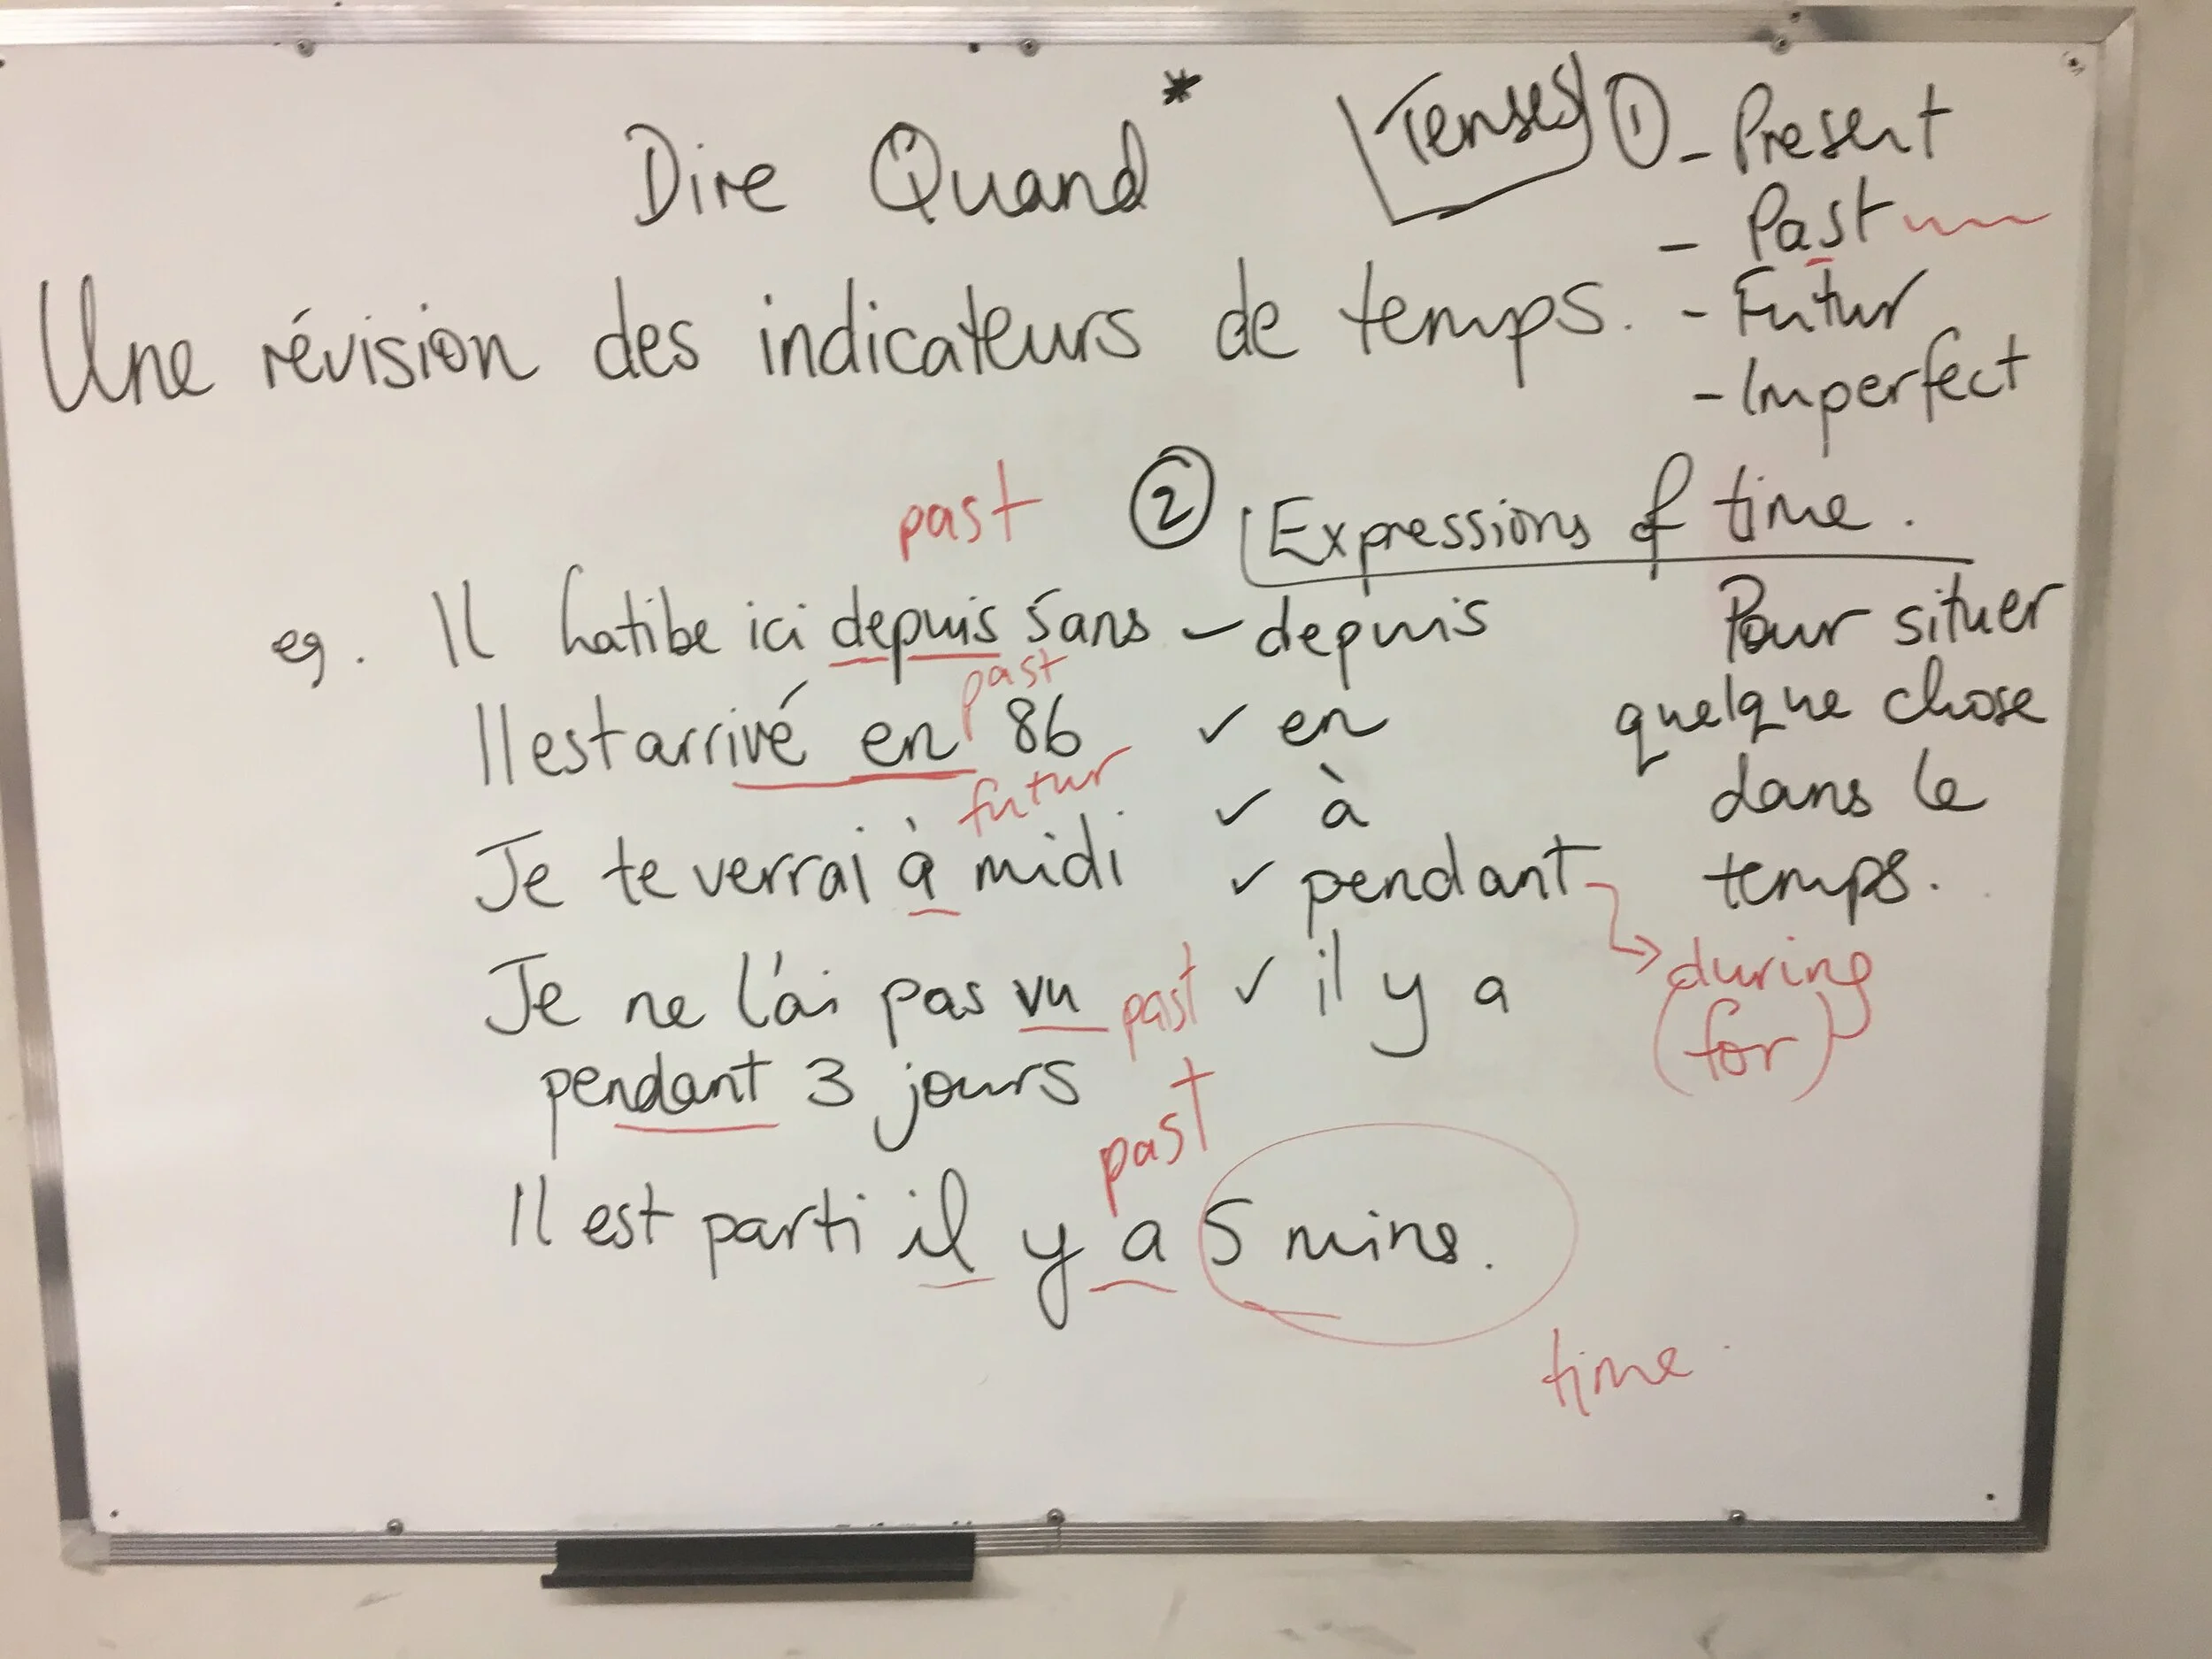 Dire Quand *
Tenses ① - Present
- Past
- Futur
- Imperfect
Une révision des indicateurs de temps.
② Expressions of time.
past
eg. Il hatibe ici depuis 5ans - depuis
past
Il est arrivé en 86 ✓ en
futur
✓ à
Je te verrai à midi ✓ pendant
Je ne l'ai pas vu past ✓ il y a
pendant 3 jours
past
Il est parti il y a 5 mins.
time
Pour situer
quelque chose
dans le
temps.
during
(for)